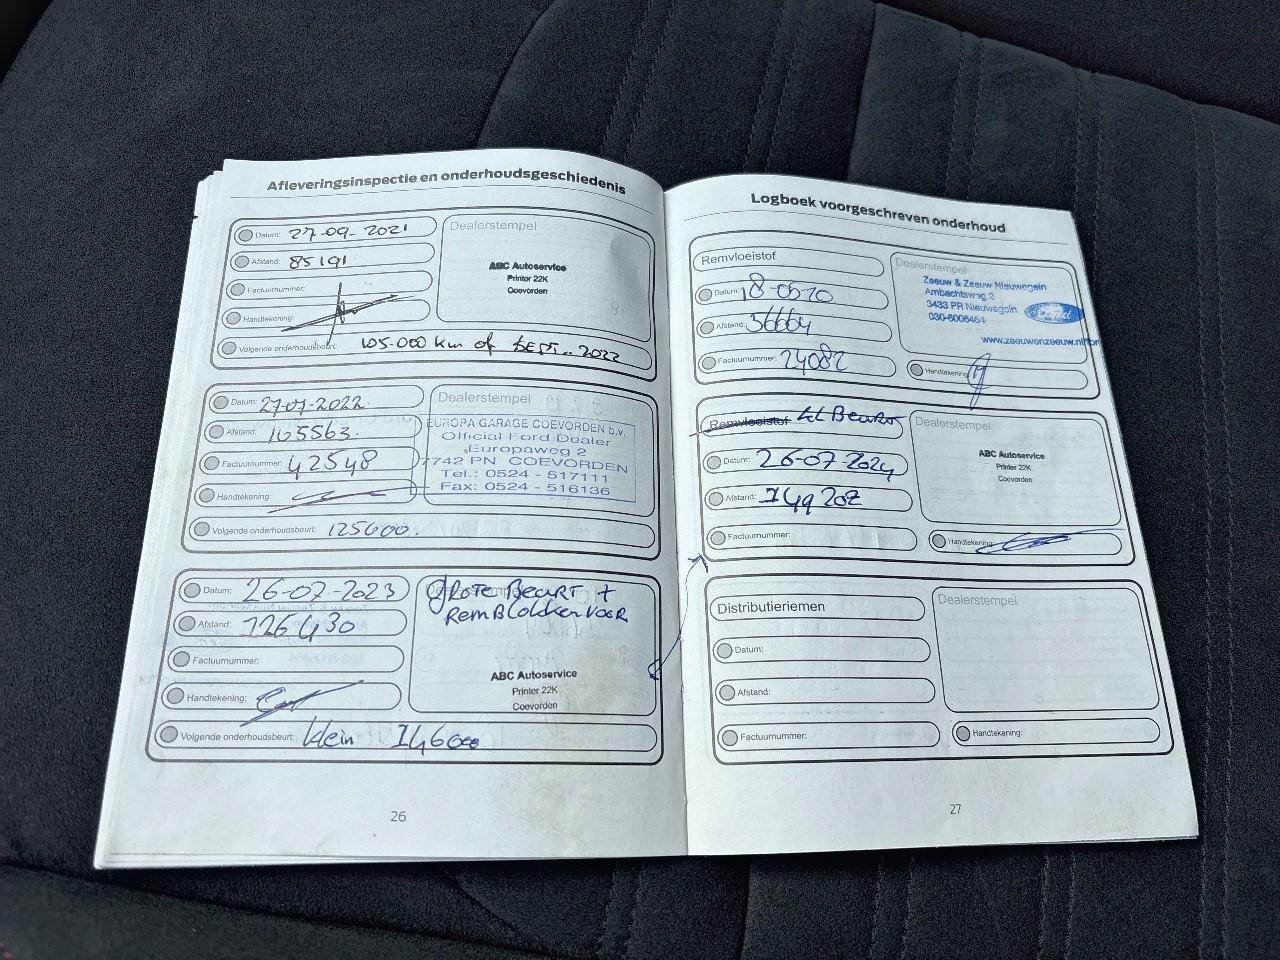 Afleveringsinspectie en onderhoudsgeschiedenis
Datum: 27-09-2021
Afstand: 85191
Factuurnummer:
Handtekening:
Volgende onderhoudsbeurt: 105.000 km of SEPT..2022
Dealerstempel
ABC Autoservice
Printer 22K
Coevorden
Datum: 27-07-2022.
Afstand: 105563.
Factuurnummer: 42548
Handtekening:
Volgende onderhoudsbeurt: 125600.
Dealerstempel
EUROPA GARAGE COEVORDEN b.v.
Official Ford Dealer
Europaweg 2
7742 PN COEVORDEN
Tel.: 0524 - 517111
Fax: 0524 - 516136
Datum: 26-07-2023
Afstand: 126430
Factuurnummer:
Handtekening:
Volgende onderhoudsbeurt: klein 146000
Dealerstempel
grote Beurt +
RemBlokken VOOR
ABC Autoservice
Printer 22K
Coevorden
26
Logboek voorgeschreven onderhoud
Remvloeistof
Datum:
Afstand: 36664
Factuurnummer: 24082
Handtekening:
Dealerstempel
Zeeuw & Zeeuw Nieuwegein
Ambachtsweg 2
3433 PR Nieuwegein
030-6006464
Remvloeistof kl Beurt
Datum: 26-07-2024
Afstand: 149202
Factuurnummer:
Handtekening:
Dealerstempel
ABC Autoservice
Printer 22K
Coevorden
Distributieriemen
Datum:
Afstand:
Factuurnummer:
Handtekening:
Dealerstempel
27